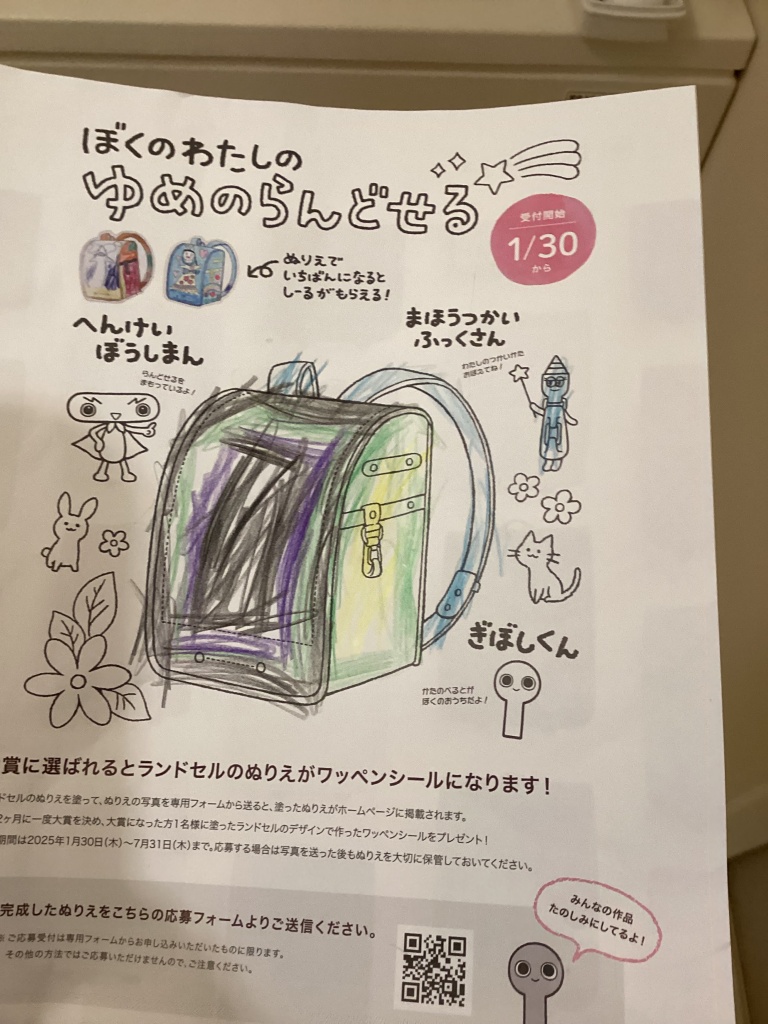 ぼくのわたしの
ゆめのらんどせる
受付開始
1/30
から
ぬりえで
いちばんになると
しーるがもらえる!
へんけい
ぼうしまん
らんどせるを
まもっているよ!
まほうつかい
ふっくさん
わたしのつかいかた
おぼえてね!
ぎぼしくん
かたのべるとが
ぼくのおうちだよ!
賞に選ばれるとランドセルのぬりえがワッペンシールになります!
ドセルのぬりえを塗って、ぬりえの写真を専用フォームから送ると、塗ったぬりえがホームページに掲載されます。
2ヶ月に一度大賞を決め、大賞になった方1名様に塗ったランドセルのデザインで作ったワッペンシールをプレゼント!
期間は2025年1月30日(木)~7月31日(木)まで。応募する場合は写真を送った後もぬりえを大切に保管しておいてください。
完成したぬりえをこちらの応募フォームよりご送信ください。
※ご応募受付は専用フォームからお申し込みいただいたものに限ります。
その他の方法ではご応募いただけませんので、ご注意ください。
みんなの作品
たのしみにしてるよ!